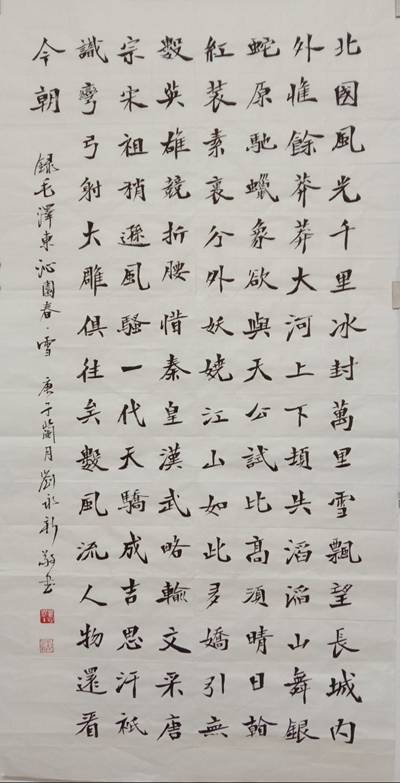 北國風光千里冰封萬里雪飄望長城內
外惟餘莽莽大河上下頓失滔滔山舞銀
蛇原馳蠟象欲與天公試比高須晴日
紅裝素裹分外妖嬈江山如此多嬌引無
數英雄競折腰惜秦皇漢武略輸文采唐
宗宋祖稍遜風騷一代天驕成吉思汗祇
識彎弓射大雕俱往矣數風流人物還看
今朝
錄毛澤東沁園春·雪 庚子蘭月劉永新敬書